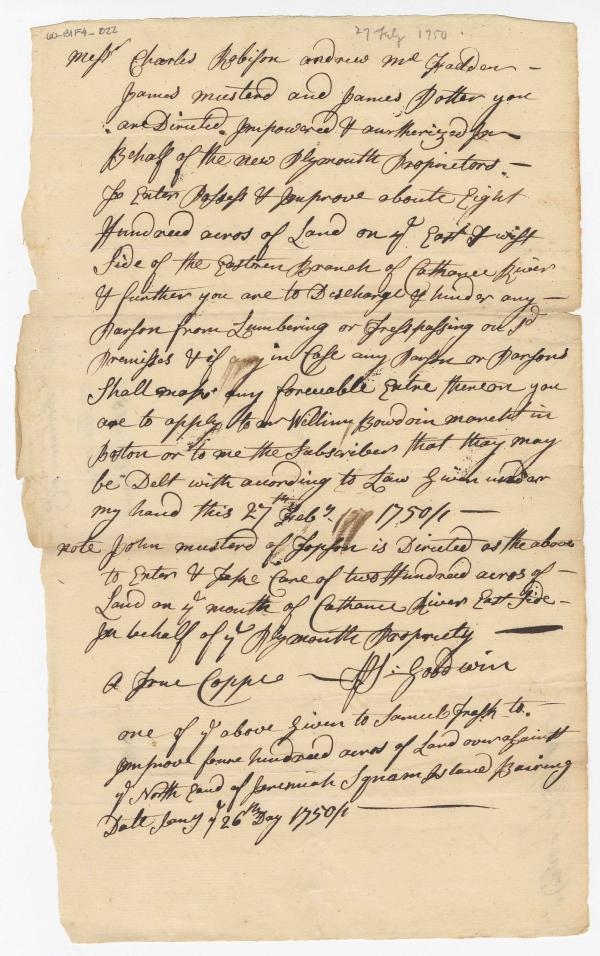 60-B1F4-022
27 July 1750
Messrs Charles Robison andrew Mc Fadden —
James musterd and James Potter you
are Directed, Impowered & aurtherized In
Behalf of the new Plymouth Proprietors —
To Enter Possess & Improve aboute Eight
Hundreed acros of Land on ye East & wist
Side of the Eastoren Branch of Cathance River
& further you are to Discharge & hinder any —
Parson from Lumbering or Tresspassing on sd
Premisses & if any in Case any Parson or Parsons
Shall make any forceable Entre thereon you
are to apply to mr Willim Bowdoin marcht in
Boston or to me the Subscriber that they may
be Delt with acording to Law Given under
my hand this 27th Feby 1750/1 —
note John musterd of Topson is Directed as the above
to Enter & Take Care of two Hundraid acros of —
Land on ye mouth of Cathance River East Side —
In behalf of ye Plymouth Propriety —
A True Coppe — Goodwin
one of ye above Given to Samuel Trask to —
Improve foure hundreed acros of Land over against
ye North Eand of Jeremiah Squam Island Bairing
Date Jany ye 26th Day 1750/1 —